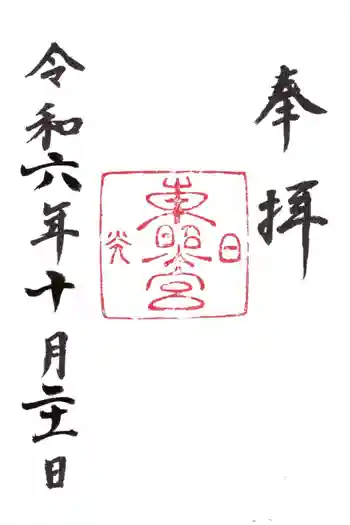 奉拝
日光
東照宮
令和六年十月二十一日